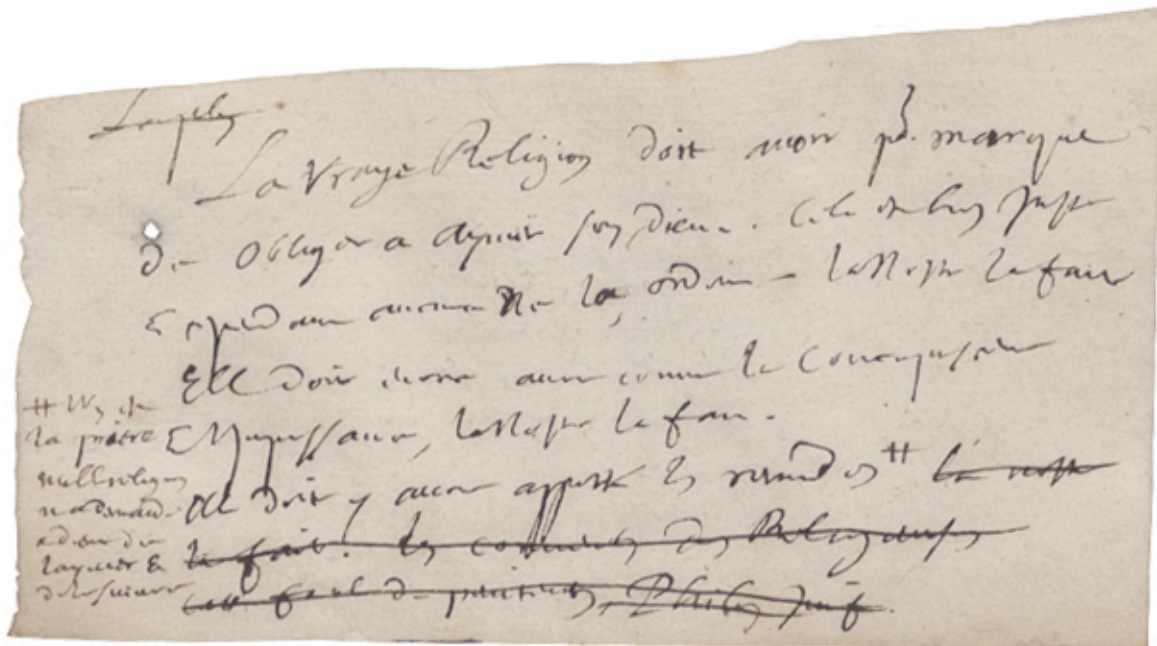 La vraye Religion doit avoir pr. marque
de obliger a aymer son dieu. Cela est bien juste
& cependant aucune ne la ordonné la Nostre la fait
Elle doit encore avoir connu la concupiscence
& l'Impuissance, la Nostre la fait.
Elle doit y avoir apporté les remedes # la nostre
la fait. les des
de Philos. Juif.
# l'un est
la priere
nulle religion
n'a demandé
a dieu de
laymer &
de le suivre